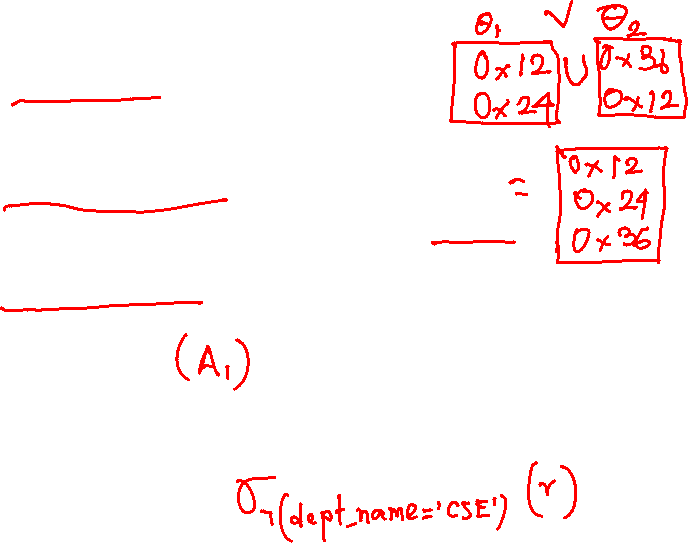 θ₁ ∨ θ₂
0x12 ∪ 0x36
0x24 0x12
= 0x12
0x24
0x36
(A₁)
σ¬(dept_name='CSE') (r)